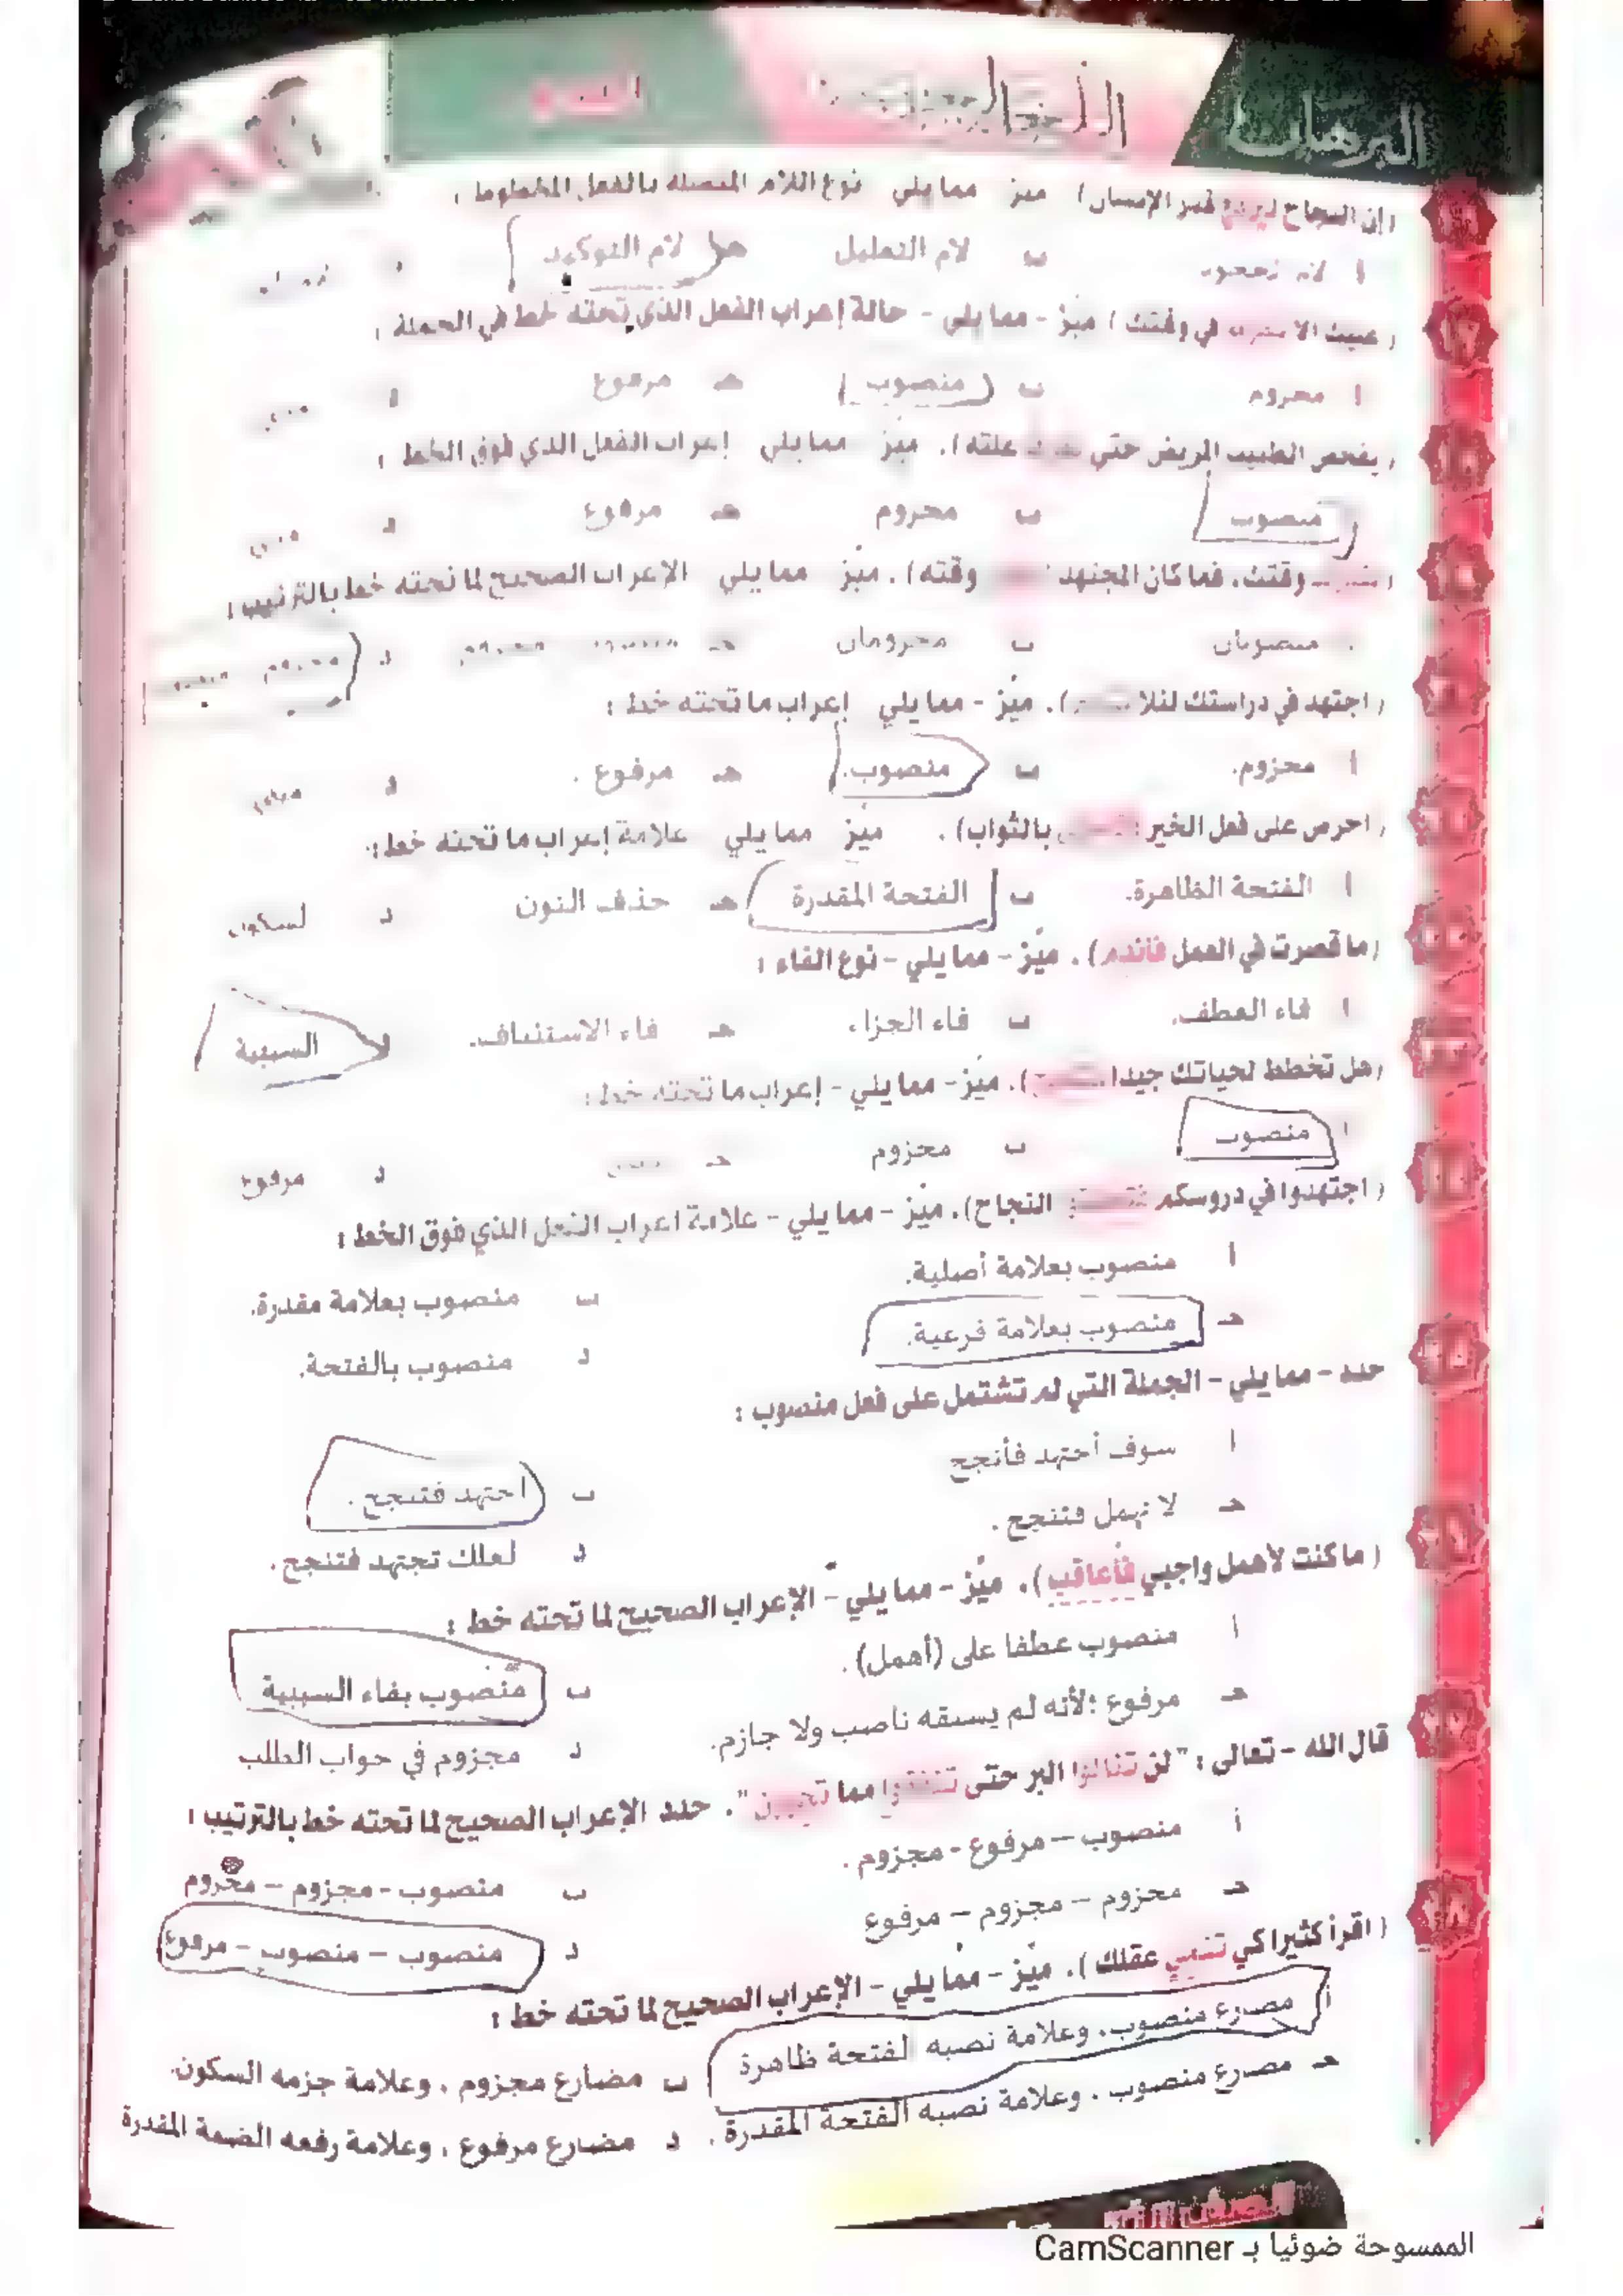 البرهان
(إن النجاح ليرفع قدر الإنسان) ميز مما يلي نوع اللام المتصلة بالفعل المخطوط :
أ لام الجحود ب لام التعليل هـ لام التوكيد د
في وقتك) ميّز - مما يلي - حالة إعراب الفعل الذي تحته خط في الجملة :
أ مجزوم ب منصوب هـ مرفوع د مبني
(يفحص الطبيب المريض حتى علته). ميّز مما يلي إعراب الفعل الذي فوق الخط :
منصوب ب مجزوم هـ مرفوع د مبني
وقتك، فما كان المجتهد وقته). ميّز مما يلي الإعراب الصحيح لما تحته خط بالترتيب :
منصوبان ب مجزومان هـ د
(اجتهد في دراستك لئلا). ميّز - مما يلي إعراب ما تحته خط :
أ مجزوم. ب منصوب. هـ مرفوع. د مبني
(احرص على فعل الخير بالثواب). ميّز مما يلي علامة إعراب ما تحته خط :
أ الفتحة الظاهرة. ب الفتحة المقدرة هـ حذف النون د السكون
(ما قصرت في العمل فأندم). ميّز - مما يلي - نوع الفاء :
أ فاء العطف. ب فاء الجزاء. هـ فاء الاستئناف. د السببية
(هل تخطط لحياتك جيدا). ميّز - مما يلي - إعراب ما تحته خط :
أ منصوب ب مجزوم هـ د مرفوع
(اجتهدوا في دروسكم النجاح). ميّز - مما يلي - علامة إعراب الفعل الذي فوق الخط :
أ منصوب بعلامة أصلية.
ب منصوب بعلامة مقدرة.
هـ منصوب بعلامة فرعية.
د منصوب بالفتحة.
حدد - مما يلي - الجملة التي لم تشتمل على فعل منصوب :
أ سوف أجتهد فأنجح
ب اجتهد فتنجح.
هـ لا تهمل فتنجح.
د لعلك تجتهد فتنجح.
(ما كنت لأهمل واجبي فأعاقب). ميّز - مما يلي - الإعراب الصحيح لما تحته خط :
أ منصوب عطفا على (أهمل).
ب منصوب بفاء السببية
هـ مرفوع ؛لأنه لم يسبقه ناصب ولا جازم.
د مجزوم في جواب الطلب
قال الله - تعالى : "لن تنالوا البر حتى تنفقوا مما تحبون". حدد الإعراب الصحيح لما تحته خط بالترتيب :
أ منصوب - مرفوع - مجزوم.
ب منصوب - مجزوم - مجزوم
هـ مجزوم - مجزوم - مرفوع
د منصوب - منصوب - مرفوع
(اقرأ كثيرا كي تنمي عقلك). ميّز - مما يلي - الإعراب الصحيح لما تحته خط :
أ مضارع منصوب، وعلامة نصبه الفتحة ظاهرة
ب مضارع مجزوم، وعلامة جزمه السكون.
هـ مضارع منصوب، وعلامة نصبه الفتحة المقدرة.
د مضارع مرفوع، وعلامة رفعه الضمة المقدرة
الممسوحة ضوئيا بـ CamScanner